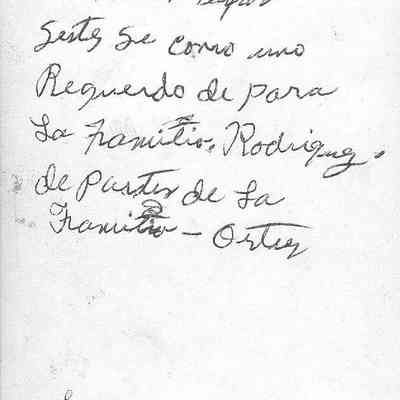 se como uno
Requerdo de para
La Framilia, Rodriguez.
de Parter de La
Framilia - Ortiz